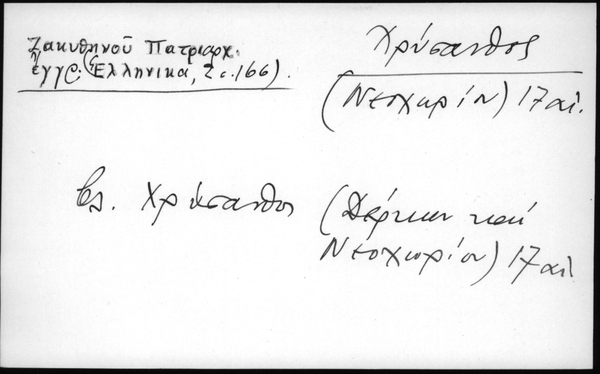 Ζακυθηνοῦ Πατριαρχ.
ἔγγρ. (Ἑλληνικά, 2 σ. 166).
Χρύσανθος
(Νεοχωρίου) 17 αἰ.
βλ. Χρύσανθος (Δέρκων καί
Νεοχωρίου) 17 αἰ.